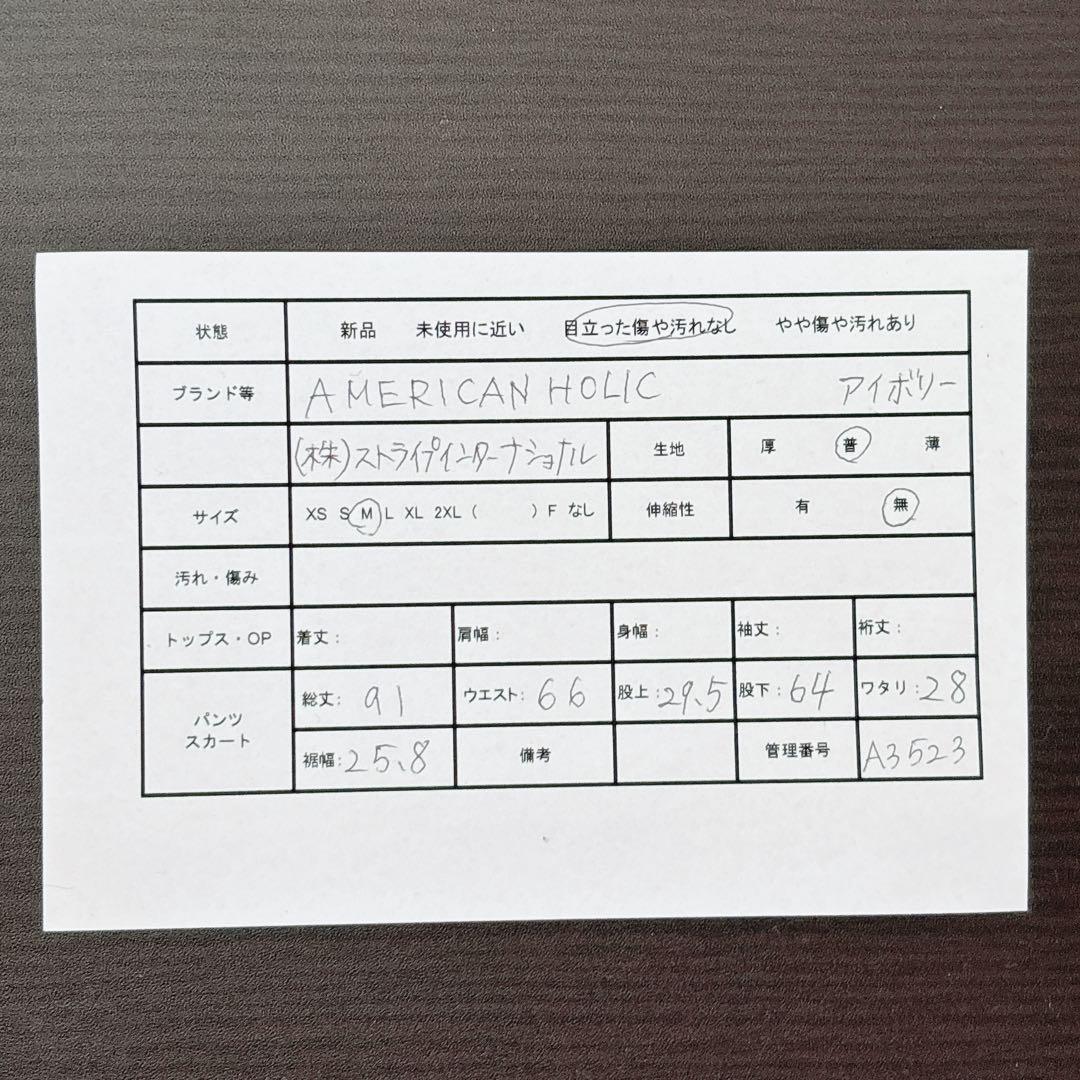 状態 新品 未使用に近い 目立った傷や汚れなし やや傷や汚れあり
ブランド等 AMERICAN HOLIC アイボリー
(株)ストライプインターナショナル 生地 厚 普 薄
サイズ XS S M L XL 2XL ( ) F なし 伸縮性 有 無
汚れ・傷み
トップス・OP 着丈: 肩幅: 身幅: 袖丈: 裄丈:
パンツ スカート 総丈: 91 ウエスト: 66 股上: 29.5 股下: 64 ワタリ: 28
裾幅: 25.8 備考 管理番号 A3523